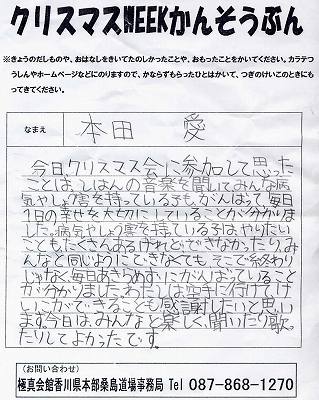 クリスマスWEEKかんそうぶん
※きょうのだしものや、おはなしをきいてたのしかったことや、おもったことをかいてください。カラテつ
うしんやホームページなどにのりますので、かならずもらったひとはかいて、つぎのけいこのときにも
ってきてください。
なまえ 本田 愛
今日、クリスマス会に参加して思った
ことは、しはんの音楽を聞いてみんな病
気やしょう害を持っている子も、がんばって、毎日
1日の幸せを大切にしていることが分かりま
した。病気やしょう害を持っている子はやりたい
こともたくさんあるけれどできなかったり、み
んなと同じようにできなくても、そこで終わり
じゃなく、毎日あきらめずにがんばっていること
が分かりました。わたしは空手に行けてけ
いこができることも感謝したいと思い
ます。今日は、みんなと楽しく、聞いたり歌っ
たりしてよかったです。
(お問い合わせ)
極真会館香川県本部桑島道場事務局 Tel 087-868-1270